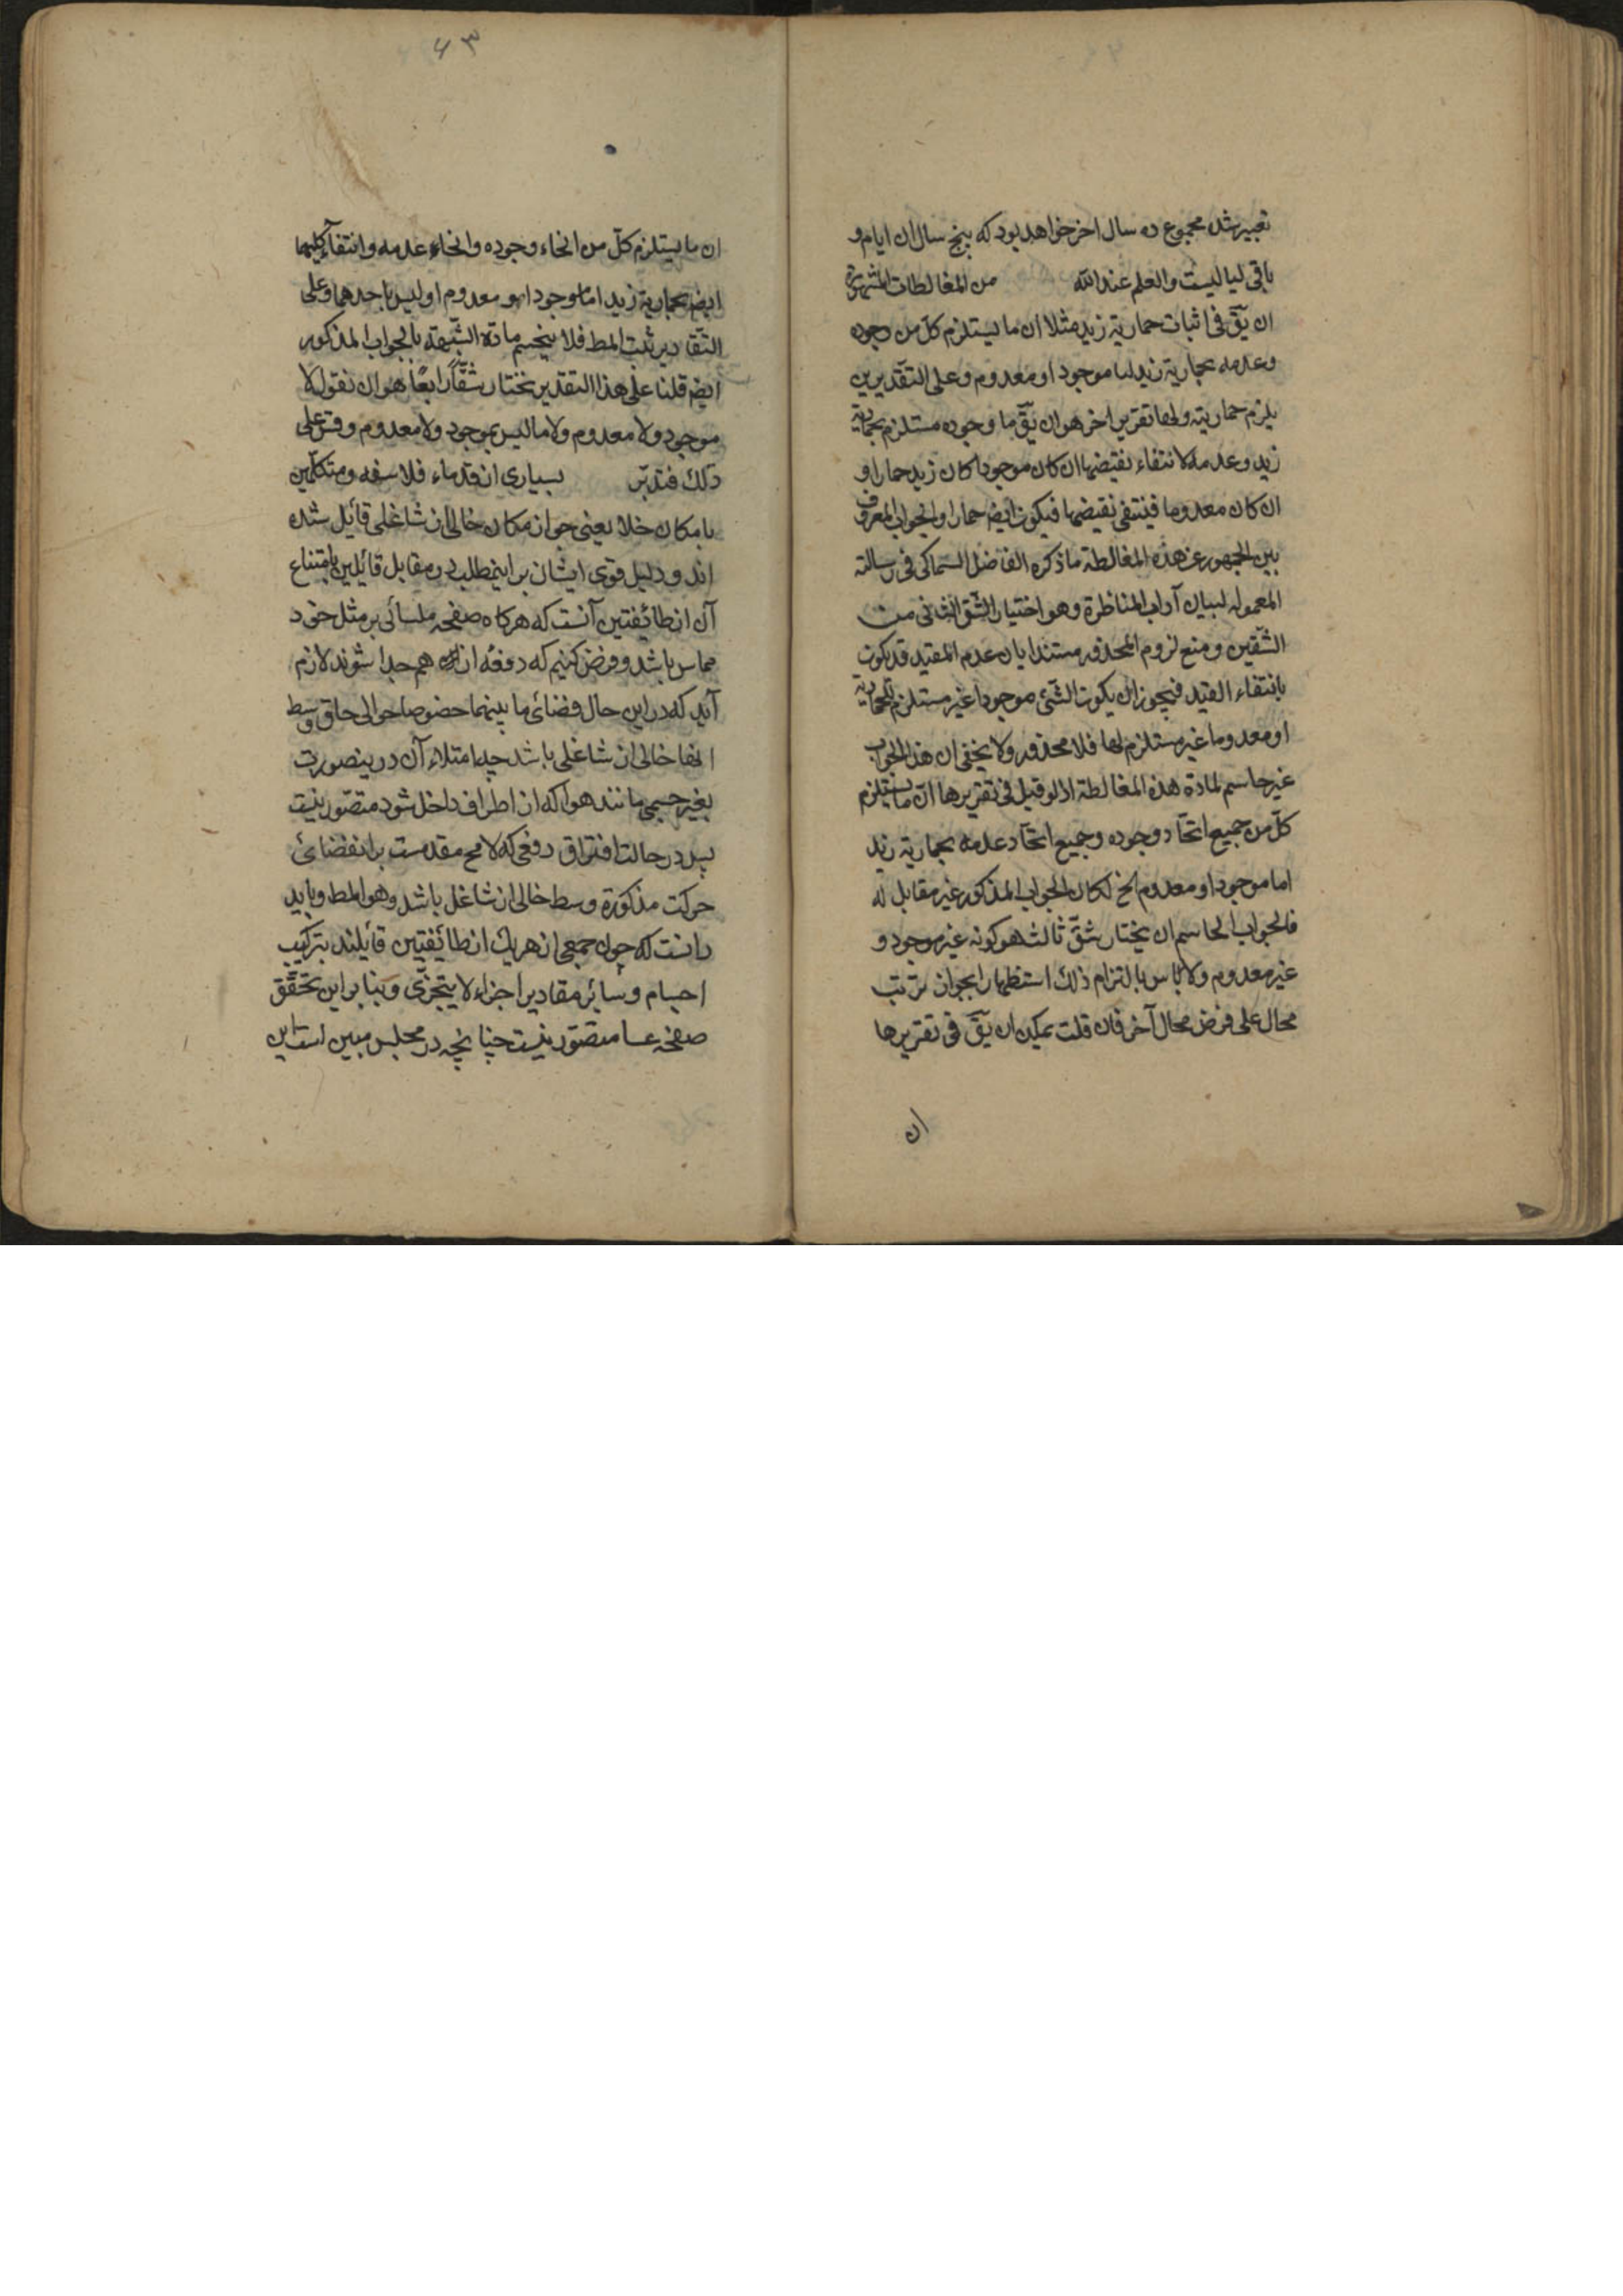 تعبیر شد مجموع ده سال اخر خواهد بود که پنج سال ان ایام و
باقی لیالیست والعلم عند الله من المغالطات المشهورة
ان یق فی اثبات حماریة زید مثلا ان ما یستلزم کل من وجوده
وعدمه بحماریة زید اما موجود او معدوم وعلی التقدیرین
یلزم حماریته ولها تقریر اخر هو ان یق ما وجوده مستلزم بحماریة
زید وعدمه لانتفاء نقیضها ان کان موجودا کان زید حمارا و
ان کان معدوما فینتفی نقیضها فیکون ایض حمارا والجواب المعروف
بین الجمهور عن هذه المغالطة ما ذکره الفاضل السماکی فی رسالته
المعمولة لبیان آداب المناظرة وهو اختیار الشق الثانی من
الشقین ومنع لزوم المحذور مستندا بان عدم المقید قد یکون
بانتفاء القید فیجوز ان یکون الشئ موجودا غیر مستلزم للحماریة
او معدوما غیر مستلزم لها فلا محذور ولا یخفی ان هذا الجواب
غیر حاسم لمادة هذه المغالطة اذ لو قیل فی تقریرها ان ما یستلزم
کل من جمیع اتحاد وجوده وجمیع اتحاد عدمه بحماریة زید
اما موجود او معدوم الخ لکان الجواب المذکور غیر مقابل له
فالجواب الحاسم ان یختار شق ثالث هو کونه غیر موجود و
غیر معدوم ولا باس بالتزام ذلک استظهارا بجواز ترتب
محال علی فرض محال آخر فان قلت یمکن ان یق فی تقریرها
ان
۶۳
ان ما یستلزم کل من انحاء وجوده وانحاء عدمه وانتفاء کلیهما
ایض بحماریة زید اما موجود او معدوم او لیس باحدهما وعلی
التقادیر ثبت المط فلا ینحسم مادة الشبهة بالجواب المذکور
ایض قلنا علی هذا التقدیر نختار شقا رابعا هو ان نقول لا
موجود ولا معدوم ولا ما لیس بموجود ولا معدوم وقس علی
ذلک فتدبر بسیاری از قدماء فلاسفه و متکلمین
بامکان خلا یعنی جواز مکان خالی از شاغلی قائل شده
اند و دلیل قوی ایشان بر اینمطلب در مقابل قائلین بامتناع
آن از طائفتین آنست که هرکاه صفحه ملسائی بر مثل خود
مماس باشد و فرض کنیم که دفعة از هم جدا شوند لازم
آید که در این حال فضائ ما بینهما خصوصا حوالی حاق وسط
انها خالی از شاغلی باشد چه امتلاء آن در ینصورت
بغیر جسمی مانند هوا که از اطراف داخل شود متصور نیست
پس در حالت افتراق دفعی که لا مح مقدمست بر انفضائ
حرکت مذکوره وسط خالی از شاغل باشد وهو المط و باید
دانست که چون جمعی از هر یک از طائفتین قائلند بترکیب
اجسام و سائر مقادیر از اجزاء لا یتجزی و بنا بر این تحقق
صفحه ملسا متصور نیست چنانچه در مجلس مبین است این